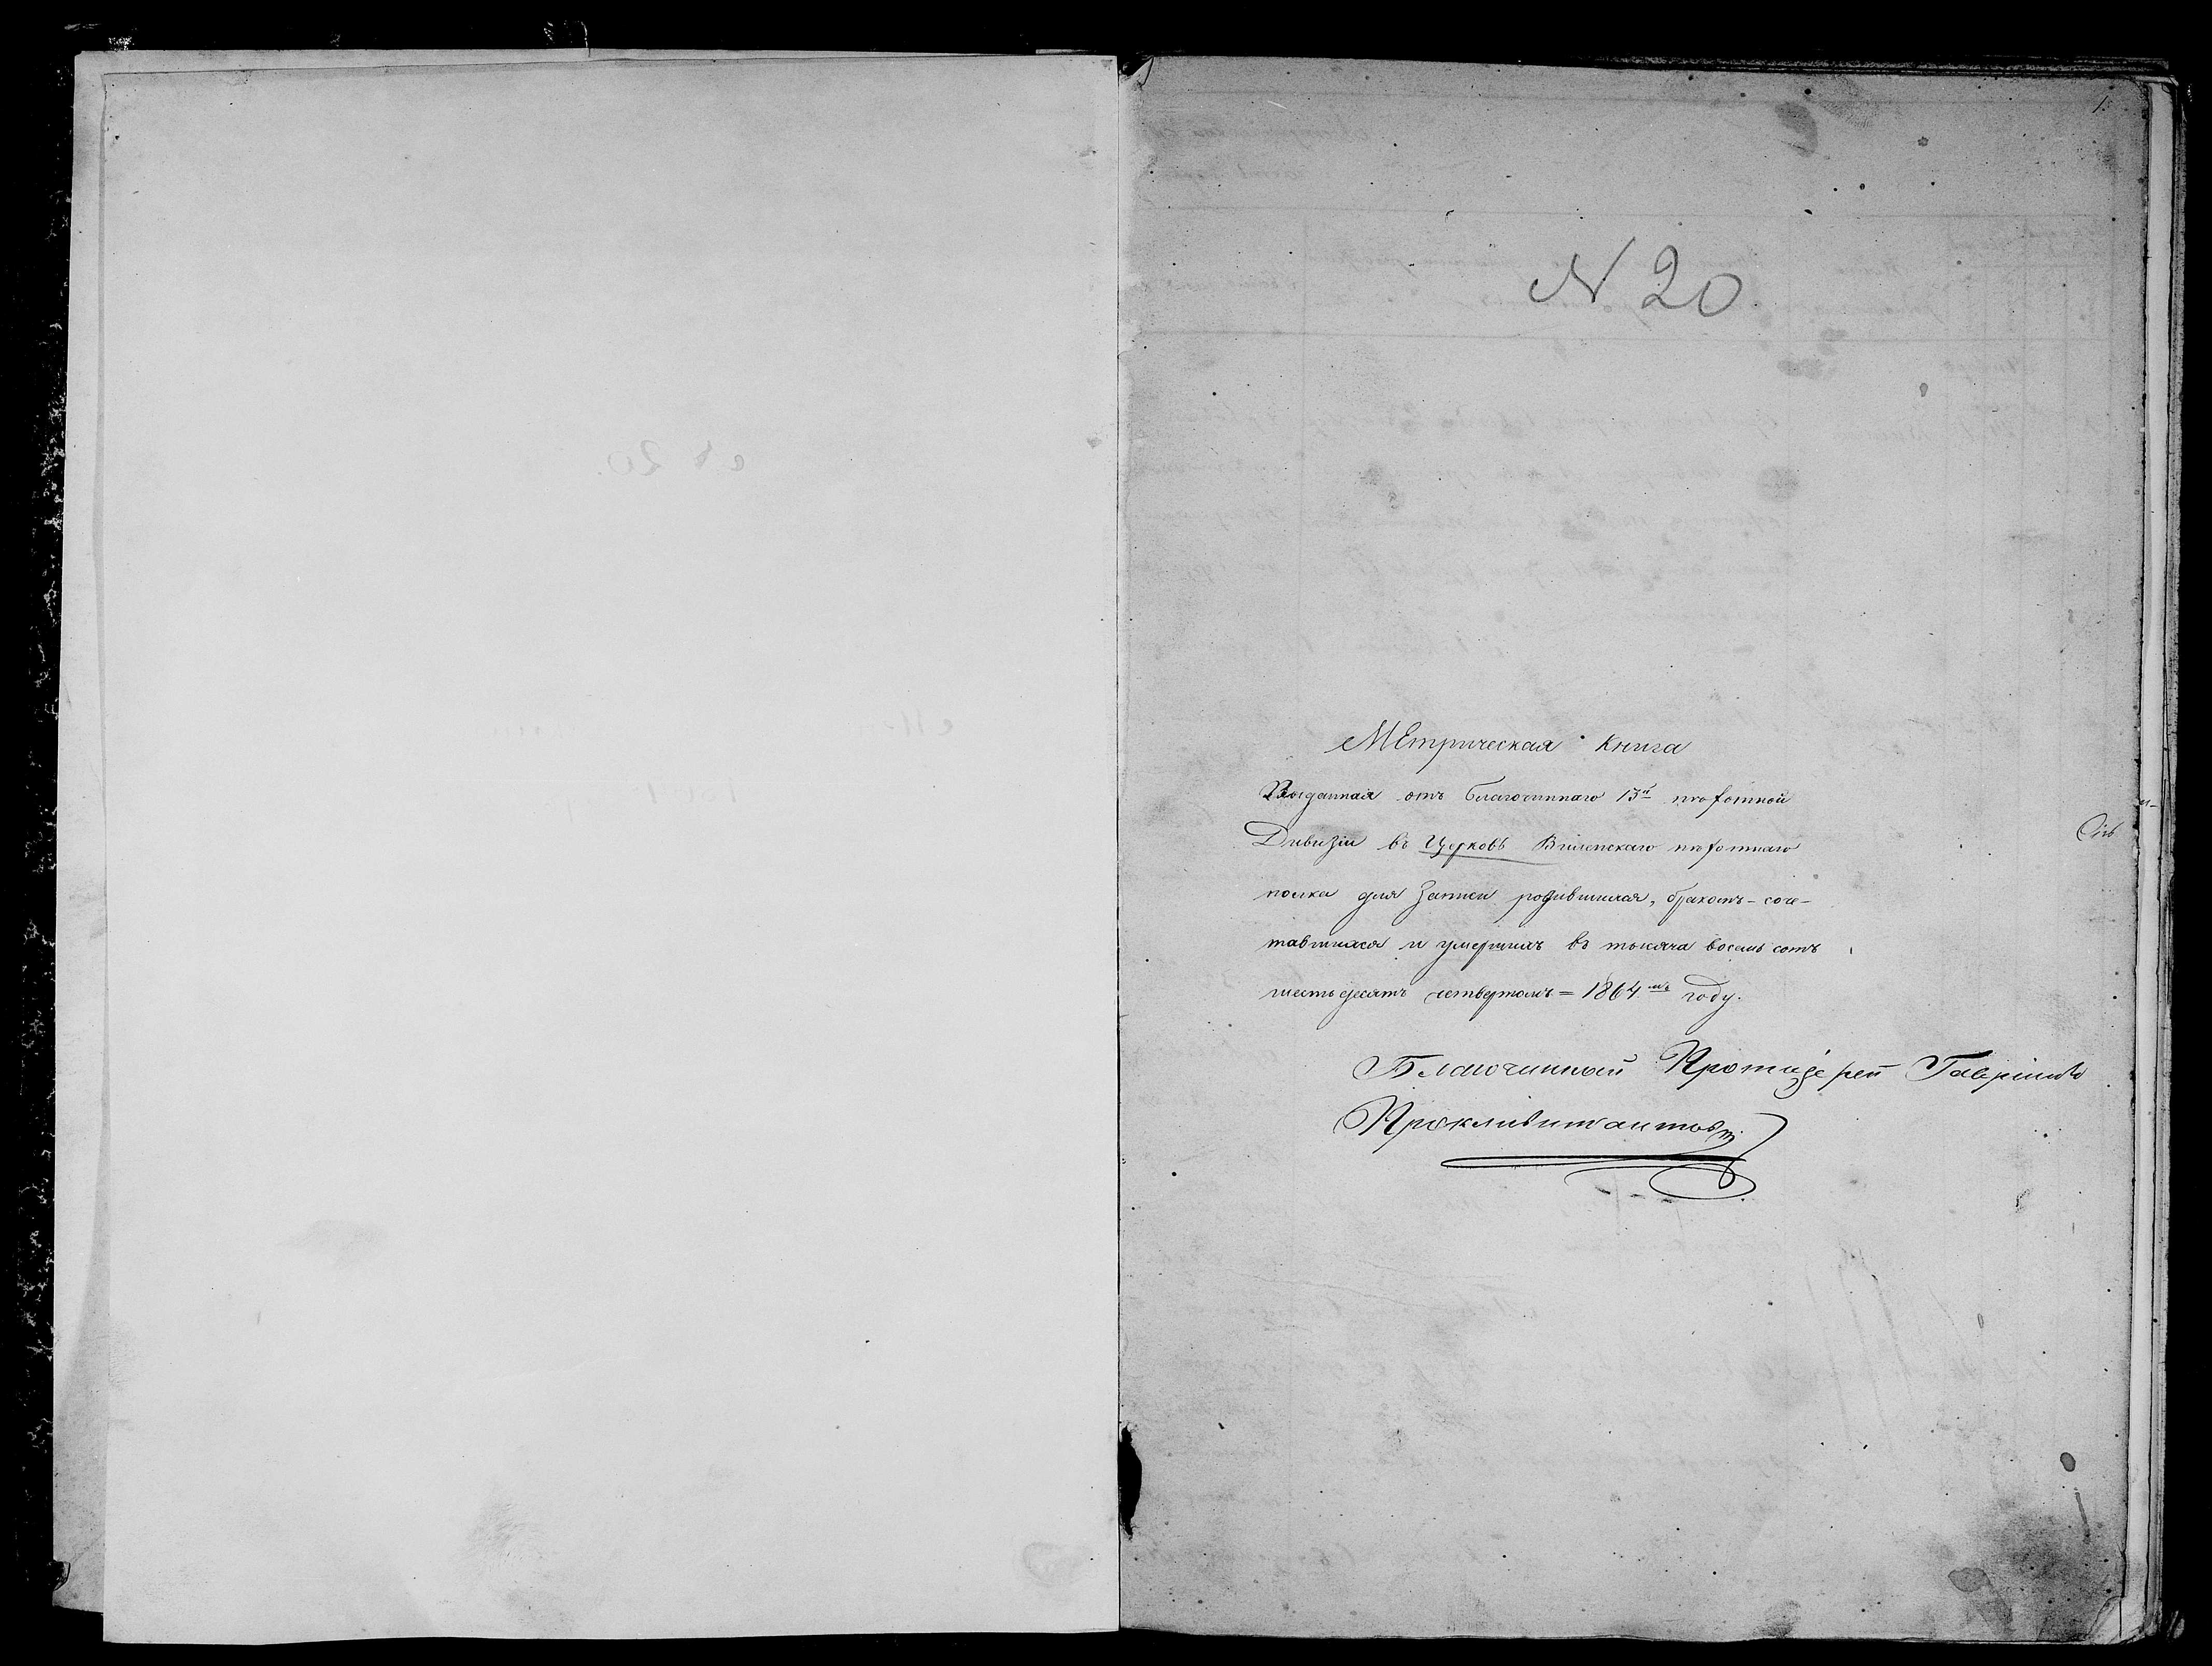 1.
N 20.
Метрическая Книга
Выданная отъ благочиннаго 13й пѣхотной
Дивизіи въ Церковь Виленскаго пѣхотнаго
полка для записи родившихся, бракомъ-соче-
тавшихся и умершихъ въ тысяча восемь сотъ
шестьдесятъ четвертомъ = 1864мъ году.
Благочинный Протоіерей Гавріилъ